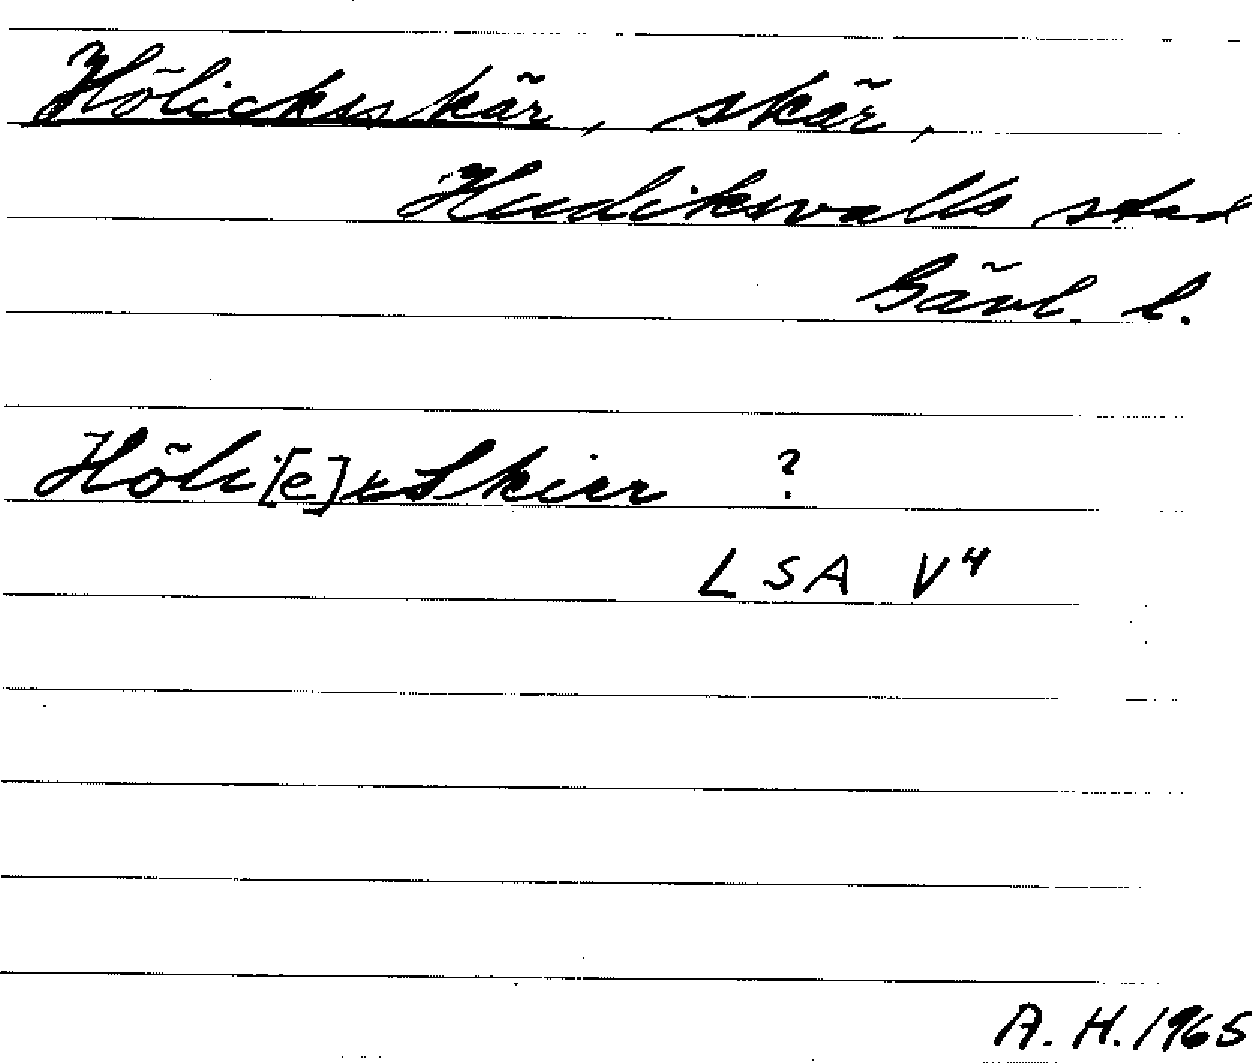 Hölickskär, skär,
Hudiksvalls stad
Gävl. l.
Höli[e]kSkier ?
LSA V4
A. H. 1965